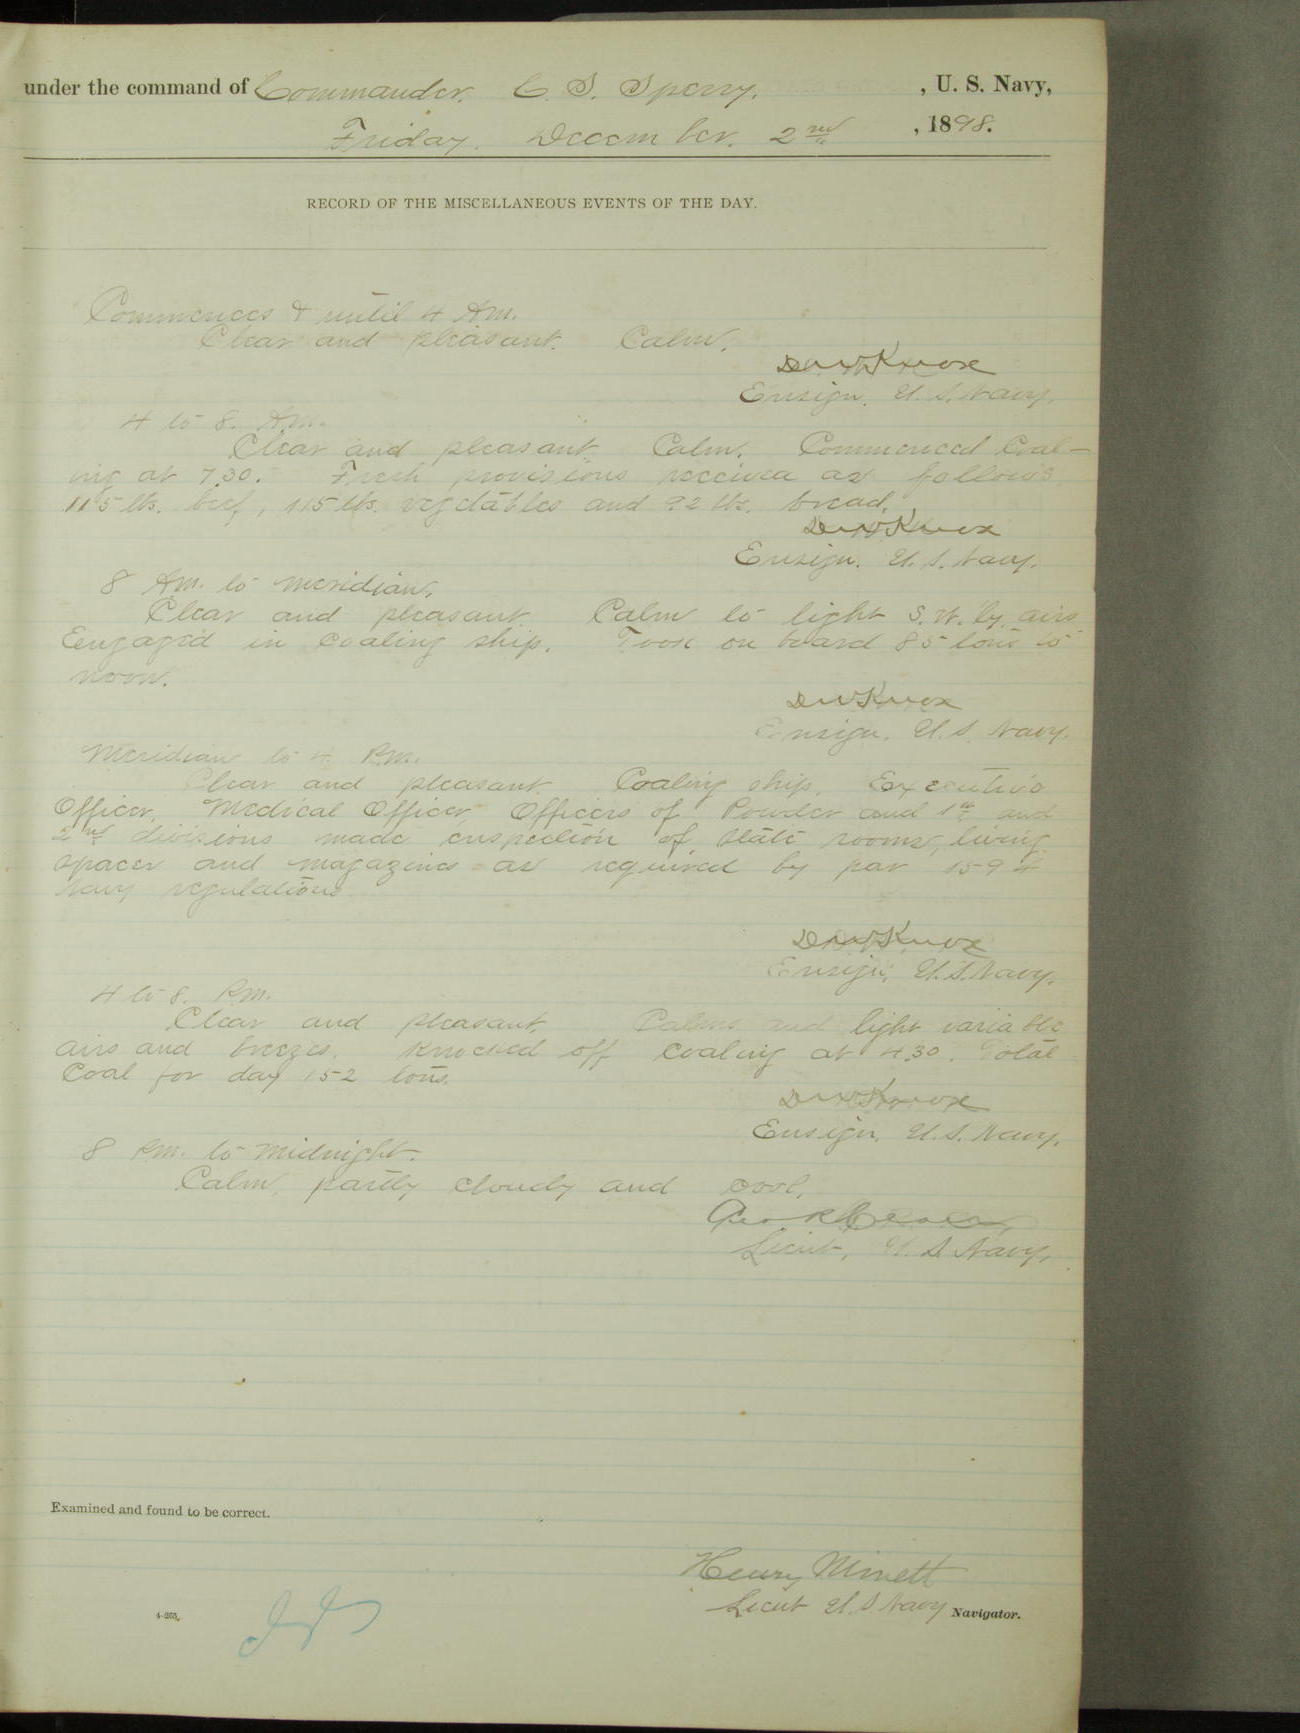 under the command of Commander. C. S. Sperry. , U. S. Navy,
Friday. December. 2nd , 1898.
RECORD OF THE MISCELLANEOUS EVENTS OF THE DAY.
Commences & until 4 Am.
Clear and pleasant. Calm.
DWKnox
Ensign. U. S. Navy.
4 to 8. Am.
Clear and pleasant. Calm. Commenced Coal-
ing at 7.30. Fresh provisions received as follows
115 lbs. beef, 115 lbs. vegetables and 92 lbs. bread.
DWKnox
Ensign. U. S. Navy.
8 Am. to meridian.
Clear and pleasant. Calm to light S. W. ly. airs
Engaged in coaling ship. Took on board 85 tons to
noon.
DWKnox
Ensign. U. S. Navy.
Meridian to 4 Pm.
Clear and pleasant. Coaling ship. Executive
Officer, Medical Officer, Officers of Powder and 1st and
2nd divisions made inspection of state rooms, living
spaces and magazines as required by par 1594
Navy regulations
DWKnox
Ensign, U. S. Navy.
4 to 8. Pm.
Clear and pleasant. Calms and light variable
airs and breezes. Knocked off coaling at 4.30. Total
Coal for day 152 tons.
DWKnox
Ensign, U. S. Navy.
8 Pm. to midnight.
Calm, partly cloudy and cool.
Lieut, U. S. Navy.
Examined and found to be correct.
Henry Minett
Lieut U. S Navy Navigator.
4-265.